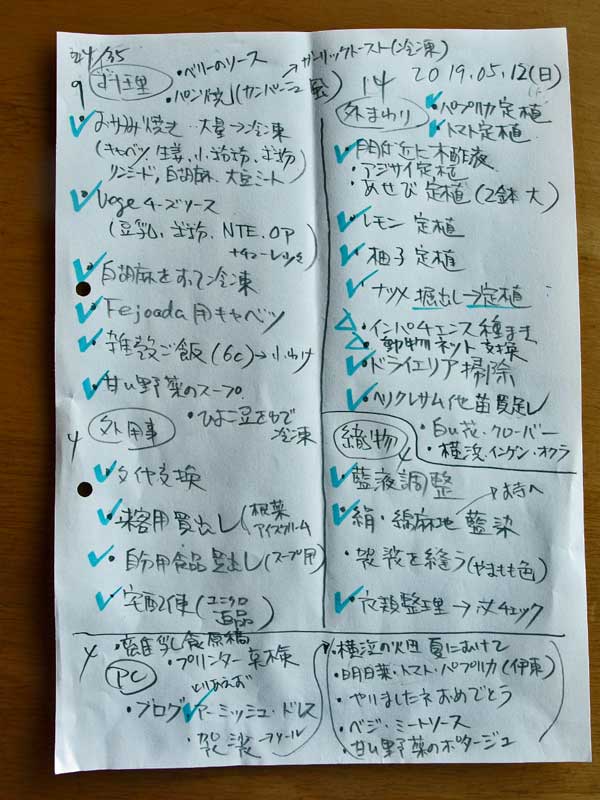 24/35
9 お料理
・ベリーのソース
・パン焼(カンパーニュ →ガーリックトースト(冷凍)
・おやき焼き 大量→冷凍
(キャベツ、生姜、小
リンシード、白胡麻、大豆ミート)
・Vegeチーズソース
(豆乳、NTE、OP
・白胡麻をすって冷凍
・Fejoada用キャベツ
・雑穀ご飯(6c)→小わけ
・甘い野菜のスープ
・ひよこ豆をゆで冷凍
4 外用事
・タイヤ交換
・来客用買出し(根菜
アイスクリーム
・自分用食品買出し(スープ用)
・宅配2便(ユニクロ
返品)
14 2019.05.12(日)
外まわり
・パプリカ定植
・トマト定植
・門付近に木酢液
・アジサイ定植
・あせび 定植(2鉢 大)
・レモン 定植
・柚子 定植
・ナツメ 掘出し→定植
・インパチェンス種まき
・動物ネット交換
・ドライエリア掃除
・ヘリクレサム他苗買足し
・白い花・クローバー
・横浜、インゲン・オクラ
織物 4
・藍液調整
・絹・綿麻地 藍染
・袈裟を縫う(やまもも色)
・衣類整理→チェック
4 PC
・離乳食原稿
・プリンター点検
・ブログ アーミッシュ・ドレス
・袈裟
・横浜の畑 夏にむけて
・明日葉・トマト・パプリカ(伊東)
・やりましたネおめでとう
・ベジ・ミートソース
・甘い野菜のポタージュ